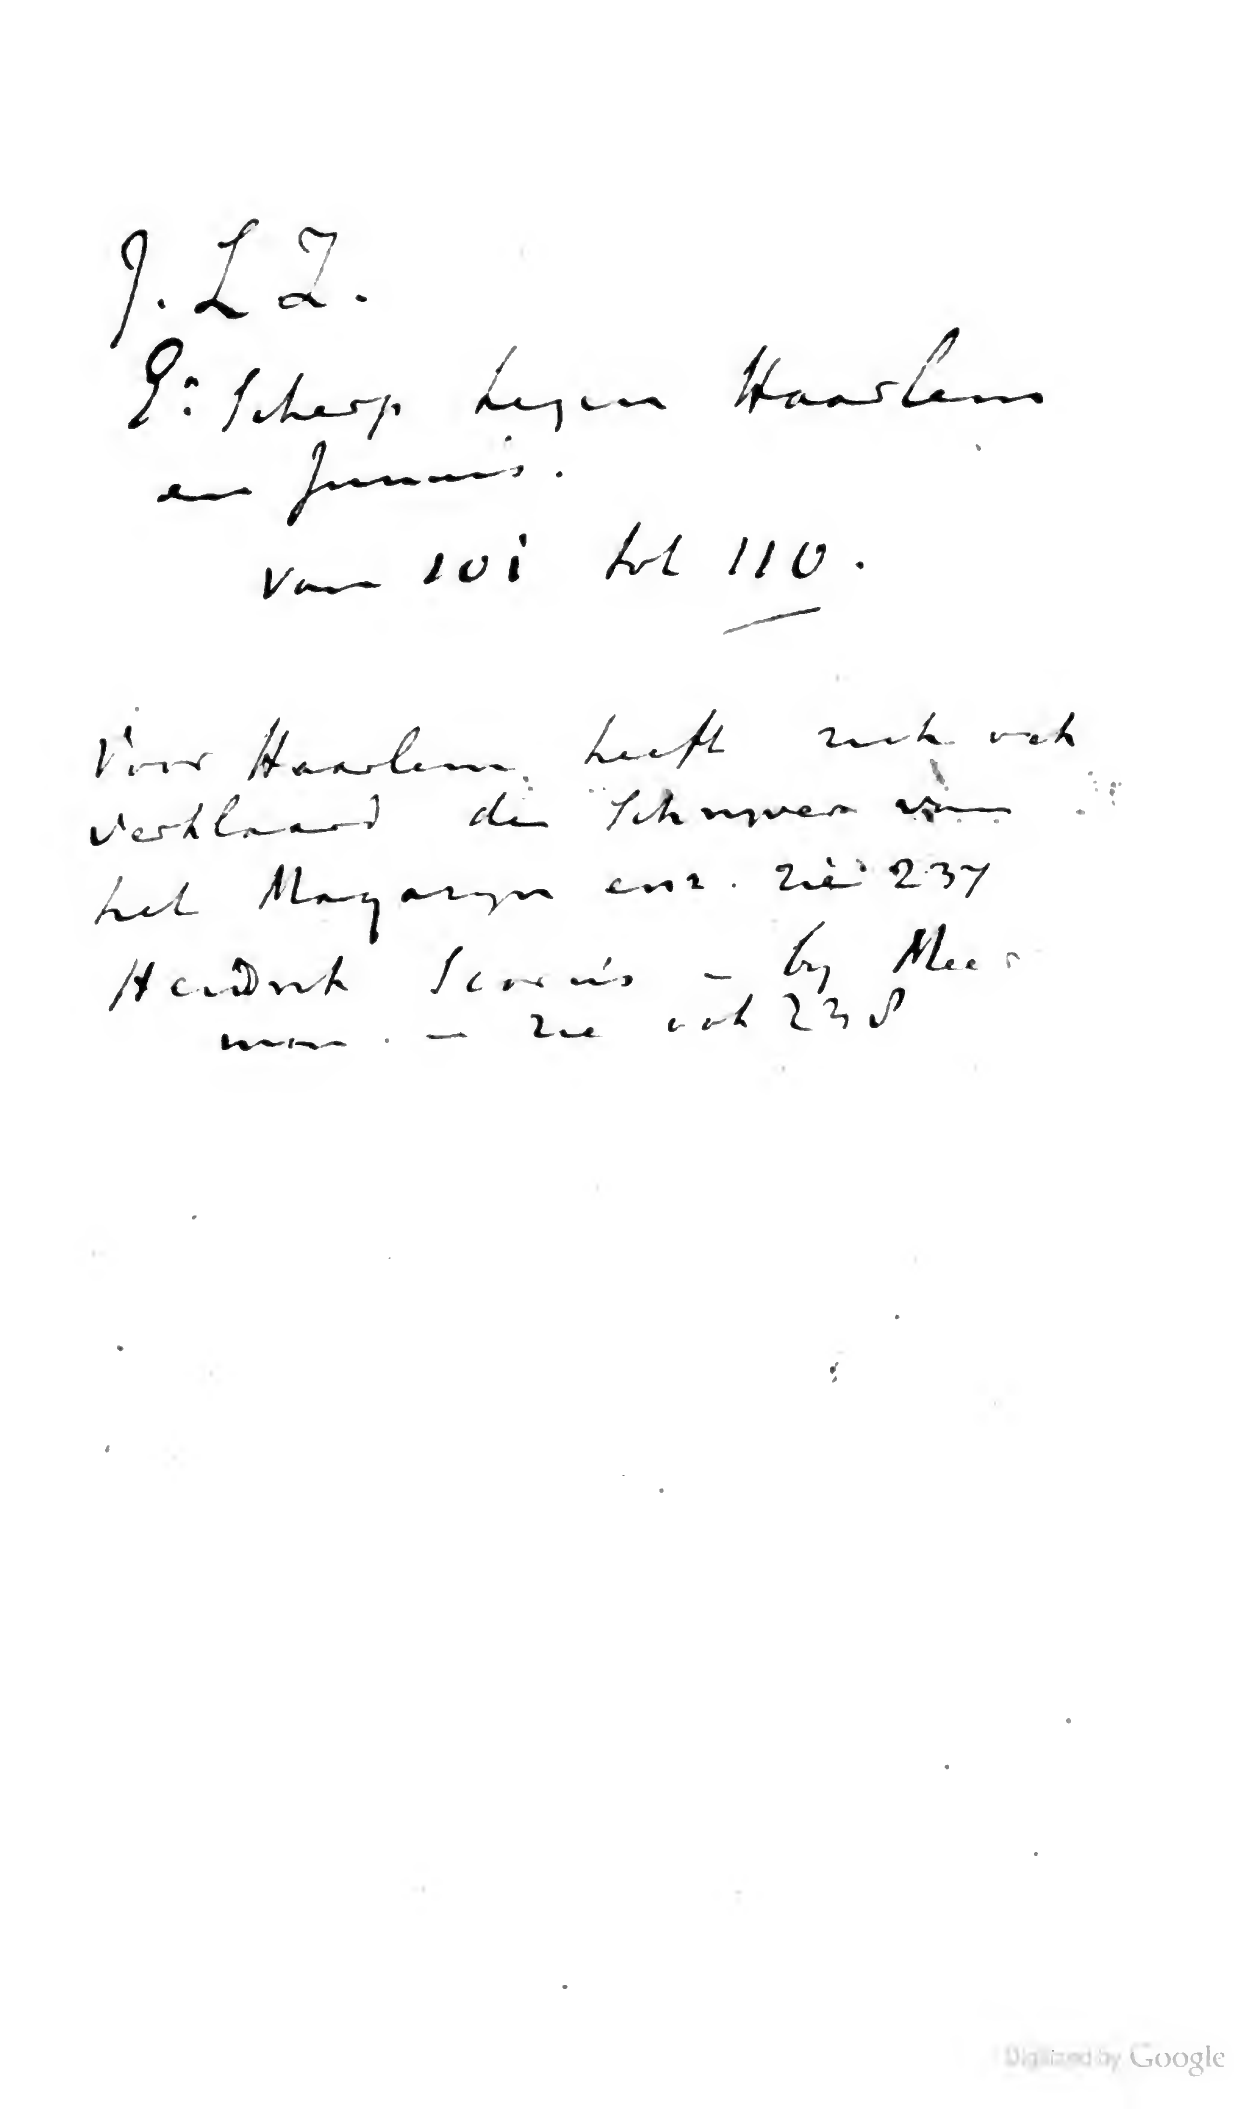 J. L Z.
E: Scherp tegen Haarlem
en Junius.
van 101 tot 110.
Voor Haarlem heeft zich ook
verklaard de Schryver van
het Magazyn enz. zie 237
Hendrik by Meer
man. — zie ook 238
Digitized by Google